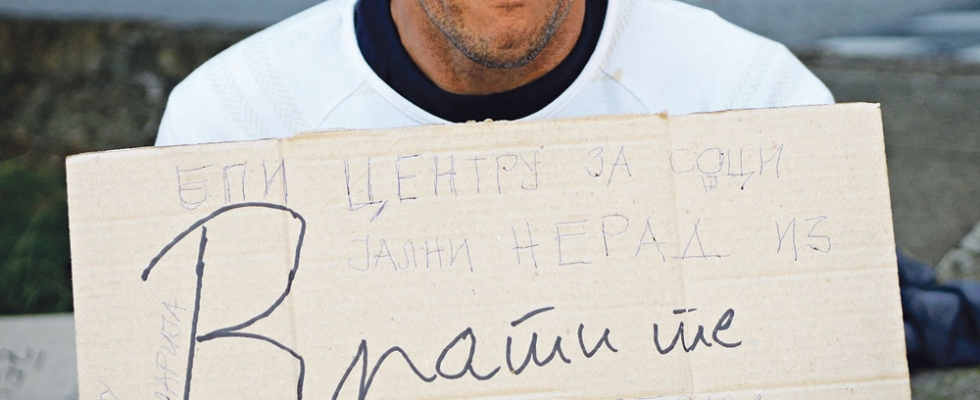 ЕПИ ЦЕНТРУ ЗА СОЦИ
ЈАЛНИ НЕРАД ИЗ
Вратите